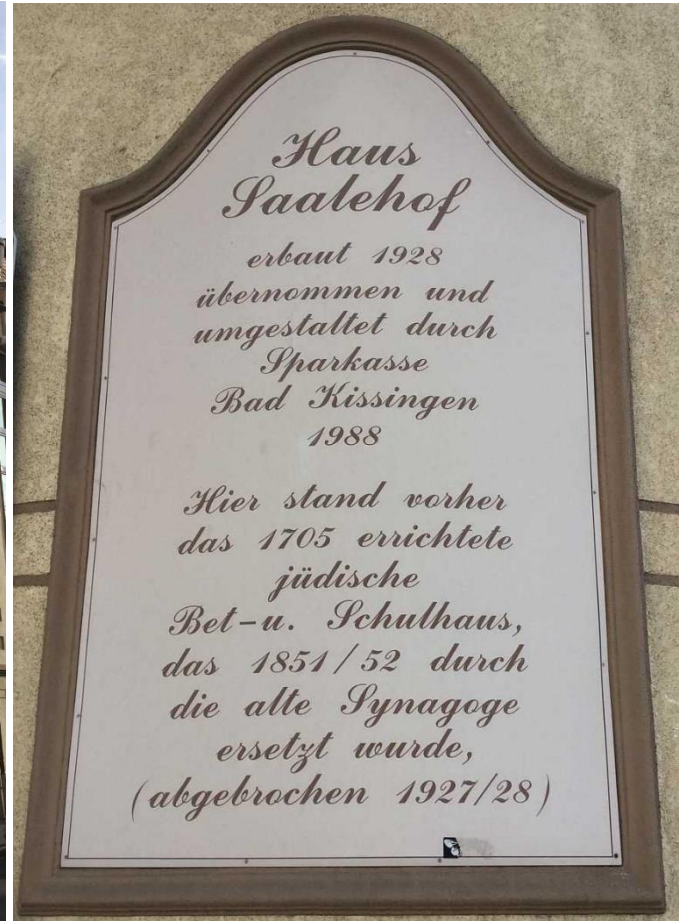 Haus
Saalehof
erbaut 1928
übernommen und
umgestaltet durch
Sparkasse
Bad Kissingen
1988
Hier stand vorher
das 1705 errichtete
jüdische
Bet-u. Schulhaus,
das 1851/52 durch
die alte Synagoge
ersetzt wurde,
(abgebrochen 1927/28)